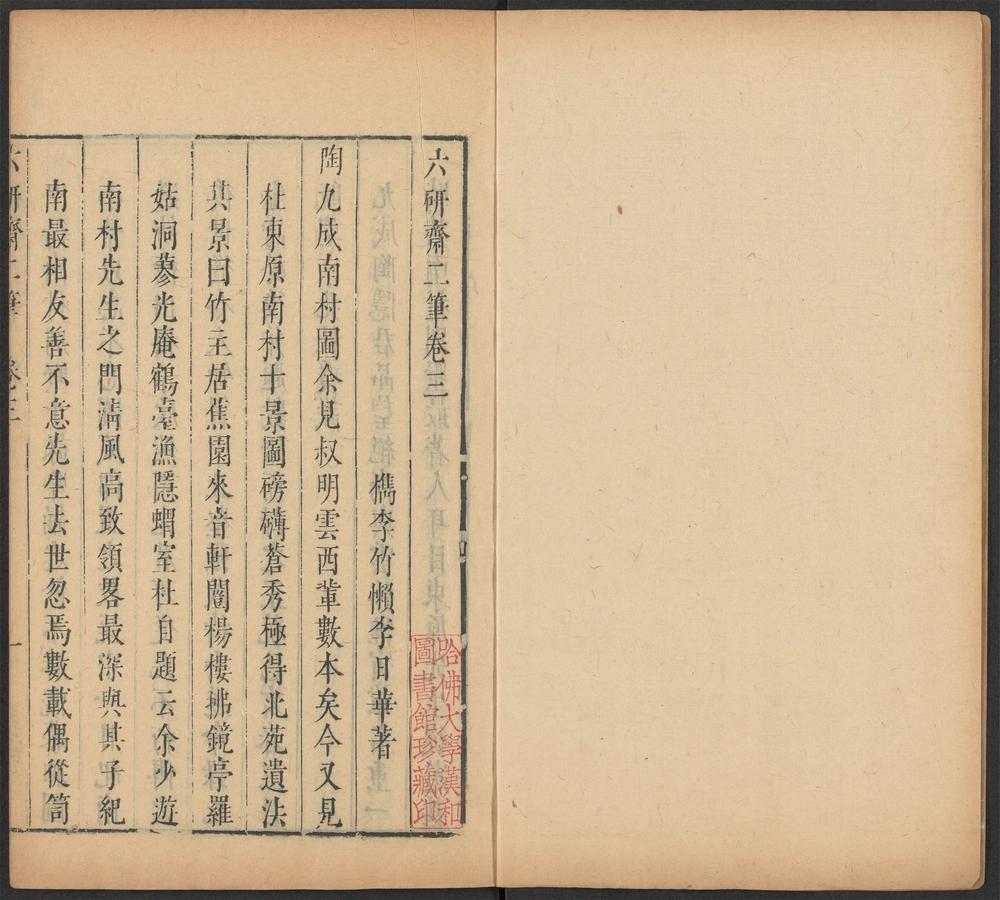 六研齋二筆卷三
檇李竹懶李日華著
陶九成南村圖余見叔明雲西輩數本矣今又見
杜東原南村十景圖磅礴蒼秀極得北苑遺法
其景曰竹主居蕉園來音軒闓楊樓拂鏡亭羅
姑洞蓼光庵鶴臺漁隱蝟室杜自題云余少遊
南村先生之門清風高致領畧最深與其子紀
南最相友善不意先生去世忽焉數載偶從笥
六研齋二筆 卷三 一
哈佛大學漢和
圖書館珍藏印